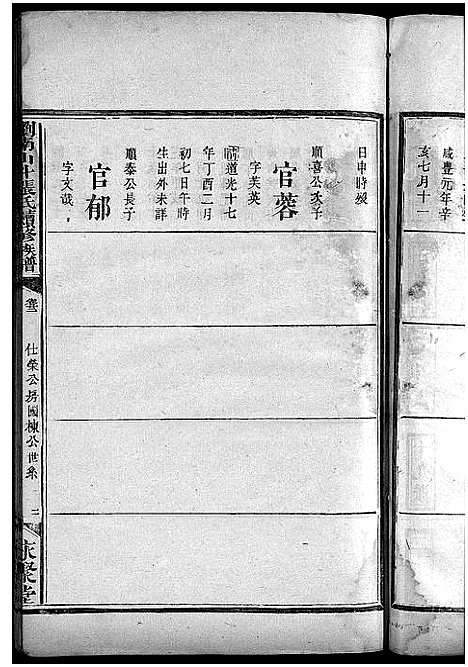 咸豐元年辛
亥七月十一
日申時歿
官蓉
順喜公次子
字芙英
清道光十七
年丁酉二月
初七日午時
生出外未詳
官郁
順泰公長子
字文哉
張氏續修族譜
仕榮公房國棟公世系